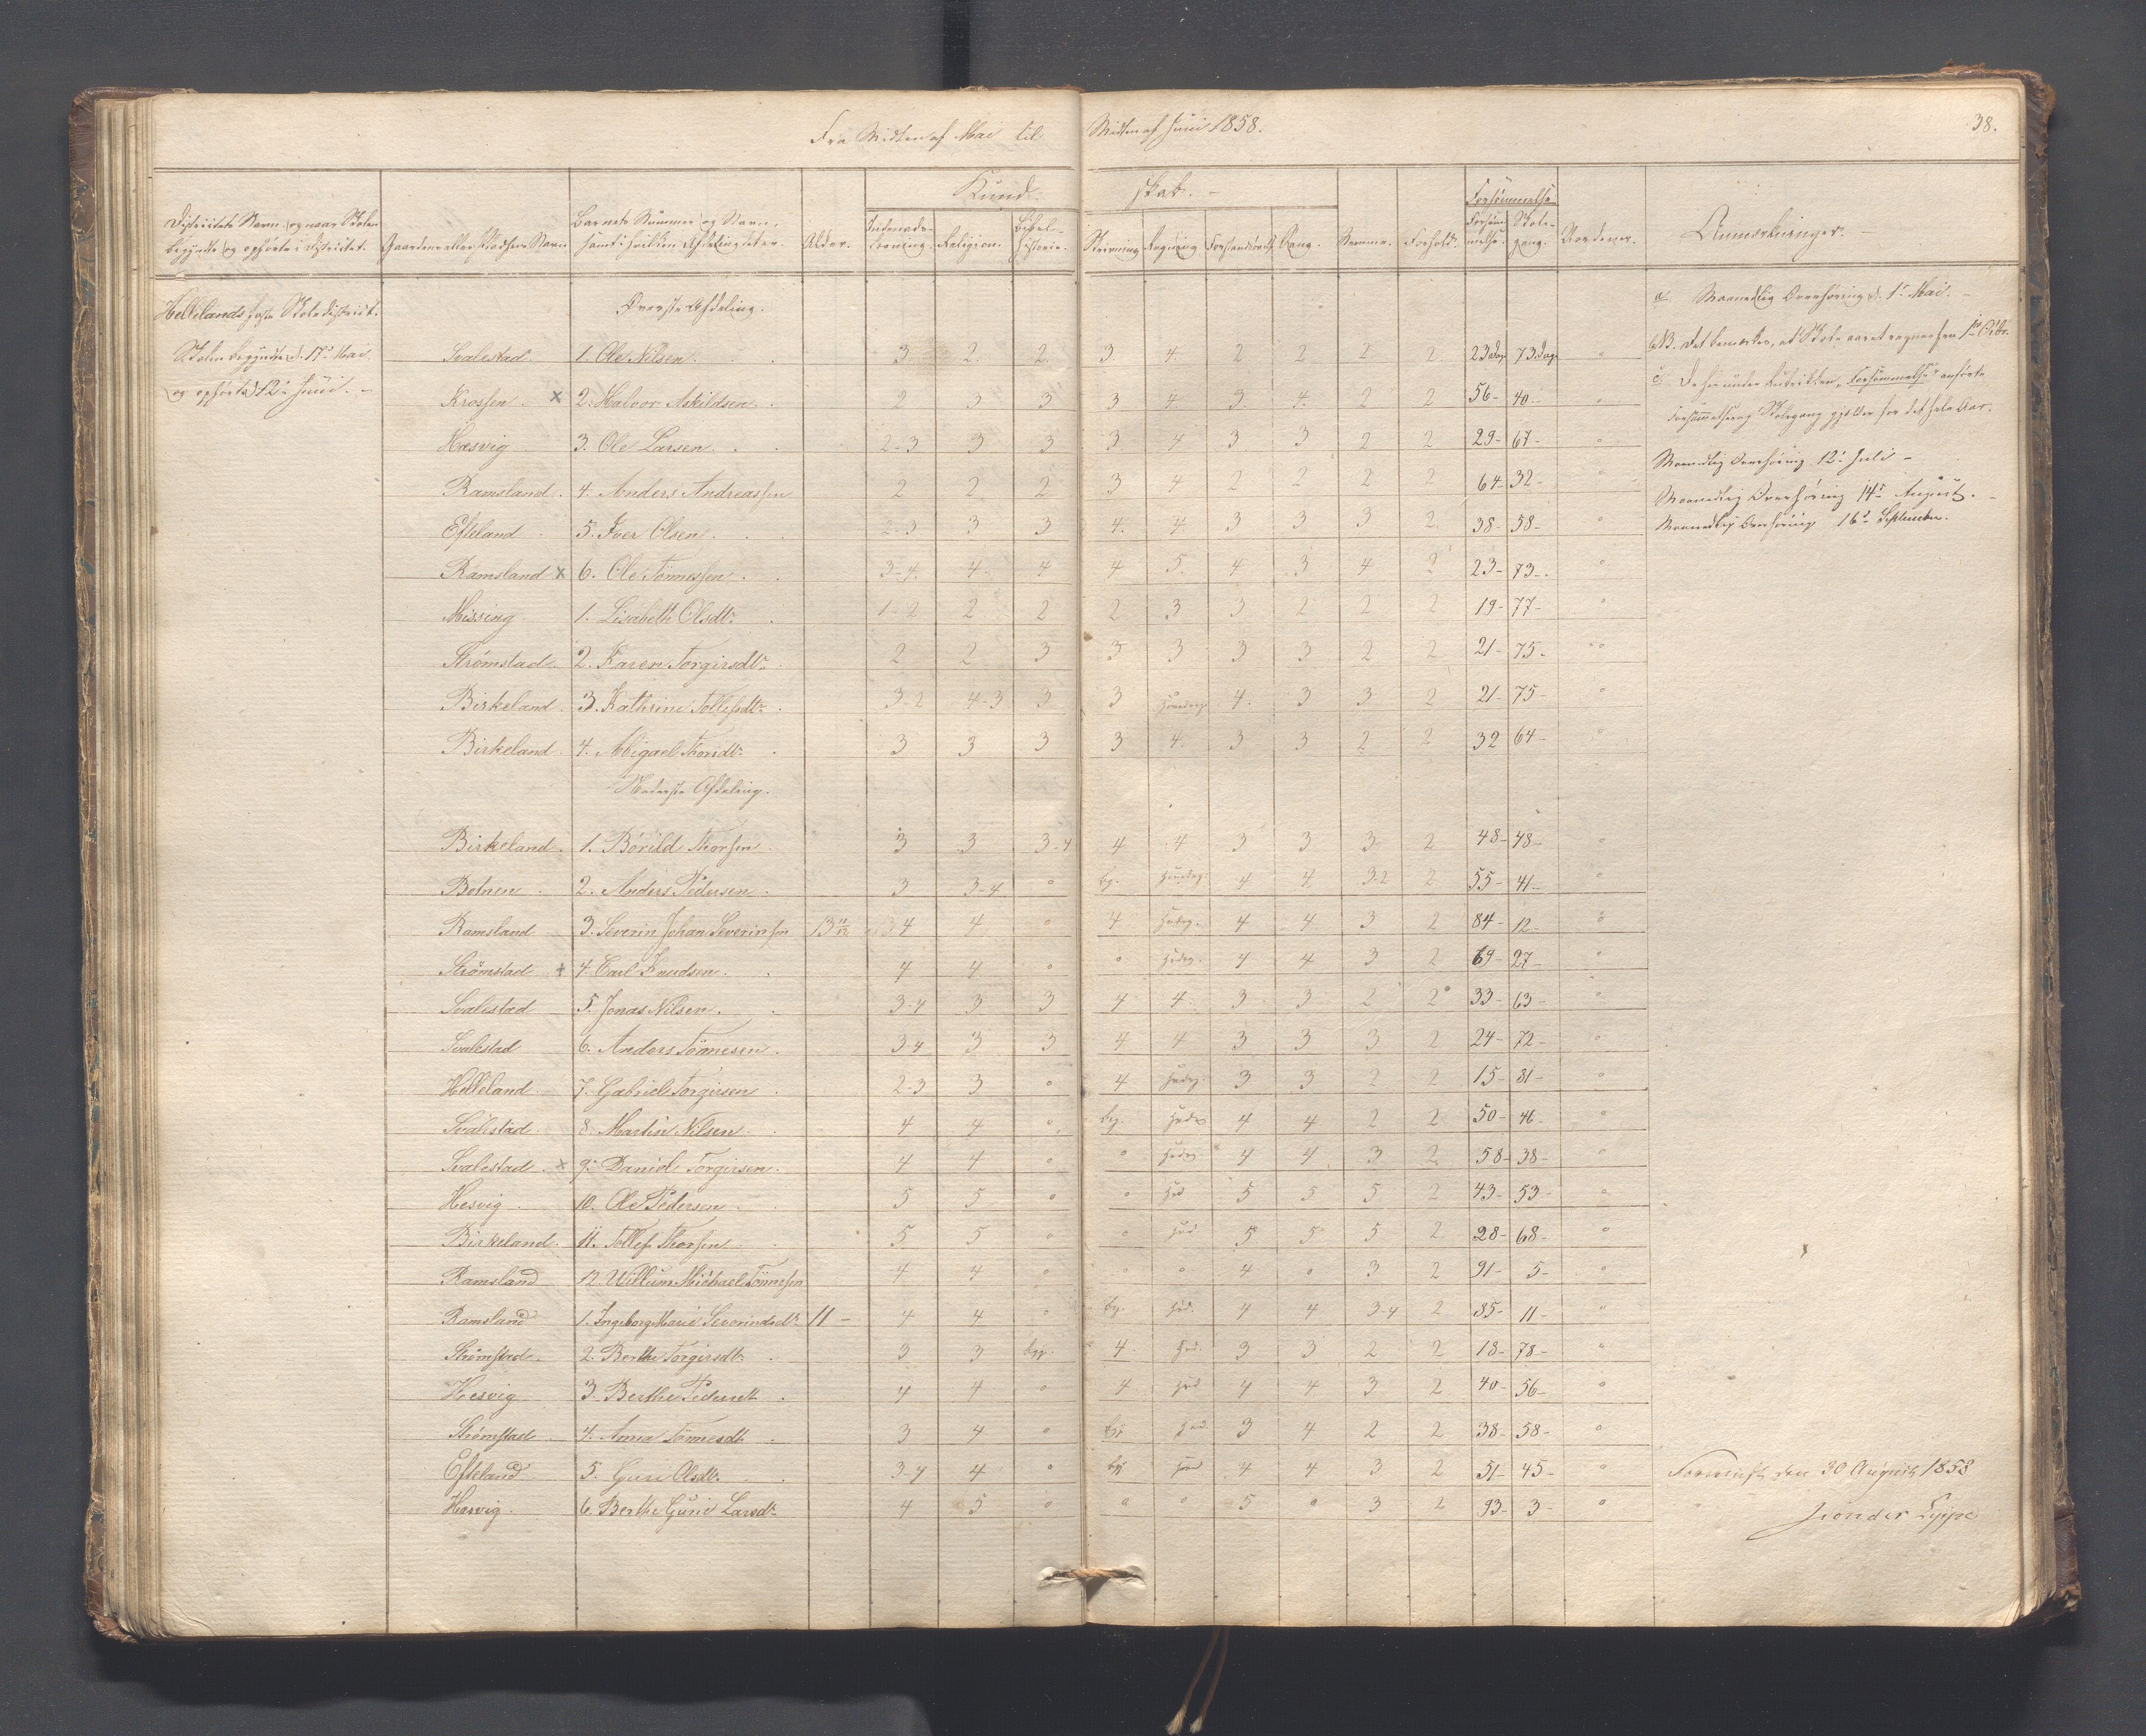 Fra Midten af Mai til Midten af Juni 1858.
38.
Kundskab. -
Forsømmelse
Districtets Navn, og naar Skolen begyndte og ophørte i Districtet.
Gaardens eller Pladsens Navn
Barnets Nummer og Navn, samt i hvilken Afdeling det er.
Alder.
Indenadslæsning.
Religion.
Bibelhistorie.
Skrivning
Regning
Forstandsøvelse
Sang.
Nemme.
Forhold.
Forsømmelse.
Skolegang.
Anmærkninger.
Hellelands faste Skoledistrict.
Skolen begyndte d. 17de Mai
og ophørte d 12te Juni. -
Øverste Afdeling.
Svalestad. 1. Ole Nilsen. 3 2 2 3 4 2 2 2 2 23 Dage 73 Dage "
Krossen. x 2. Halvor Askildsen. 2 3 3 3 4 3 4 2 2 56- 40- "
Hæsvig 3. Ole Larsen. 2-3 3 3 3 4 3 3 2 2 29- 67- "
Ramsland. 4. Anders Andreassen 2 2 2 3 4 2 2 2 2 64- 32- "
Efteland 5. Iver Olsen. 2-3 3 3 4. 4. 3 3 3 2 38- 58- "
Ramsland x 6. Ole Tønnessen. 3-4. 4. 4 4 5. 4 3 4 2 23- 73- "
Missing. 1. Lisabeth Olsdtr. 1-2 2 2 2 3 3 2 2 2 19- 77- "
Strømstad. 2. Karen Torgirsdtr. 2 2 3 3 3 3 3 2 2 21- 75- "
Birkeland. 3. Kathrine Tollefsdtr. 3-2 4-3 3 3 4. 3 3 2 21- 75- "
Birkeland 4. Abigael Thorsdtr. 3 3 3 3 4. 3 3 2 2 32 64- "
Nederste Afdeling.
Birkeland. 1. Børild Thorsen. 3 3 3-4 4 4 3 3 3 2 48- 48- "
Botnen. 2. Anders Pedersen. 3 3-4 " bg. 4 4 3-2 2 55- 41- "
Ramsland 3. Severin Johan Severinsen 13 11/12 3 4 4 " 4 4 4 3 2 84- 12- "
Strømstad x 4. Carl Knudsen. 4 4 " " 4 4 3 2 69- 27- "
Svalestad 5. Jonas Nilsen. 3-4 3 3 4 4. 3 3 2 2 33- 63- "
Svalestad 6. Anders Tønnesen. 3 4 3 3 4 4 3 3 3 2 24- 72- "
Helleland. 7. Gabriel Torgirsen 2-3 3 " 4 3 3 2 2 15- 81- "
Svalestad. 8. Martin Nilsen. 4 4 " beg. 4 4 2 2 50- 46- "
Svalestad. x 9. Daniel Torgirsen. 4 4 " " 4 4 3 2 58- 38- "
Hesvig. 10. Ole Pedersen. 5 5 " " 5 5 5 2 43- 53- "
Birkeland. 11. Tollef Thorsen 5 5 " " 5 5 5 2 28- 68- "
Ramsland 12. Willum Michael Tønnesen 4 4 " " " 4 " 3 2 91- 5- "
Ramsland 1. Ingeborg Marie Severinsdtr. 11 - 4 4 " bg. 4 4 3-4 2 85- 11- "
Strømstad. 2. Berthe Torgirsdtr. 3 3 bg. 4 3 3 2 2 18- 78- "
Hesvig 3. Berthe Pedersdtr. 4 4 " 4 4 4 3 2 40- 56- "
Strømstad 4. Anna Tønnesdtr. 3 4 " bg 3 4 2 2 38- 58- "
Efteland 5. Guri Olsdtr. 3-4 4 " bg 4 4 3 2 51- 45- "
Hæsvig. 6. Berthe Gurie Larsdtr. 4 5 " " " 5 " 3 2 93- 3- "
a. Maanedlig Overhøring d. 1ste Mai. -
NB. Det bemærkes, at Skoleaaret regnes fra 1ste Octbr.
c. De her under Rubrikken "Forsømmelse" anførte
Forsømmelser og Skolegang gjælder for det hele Aar.
Maanedlig Overhøring 12te Juli -
Maanedlig Overhøring 14de August. -
Maanedlig Overhøring 16de September.
den 30 August 1858